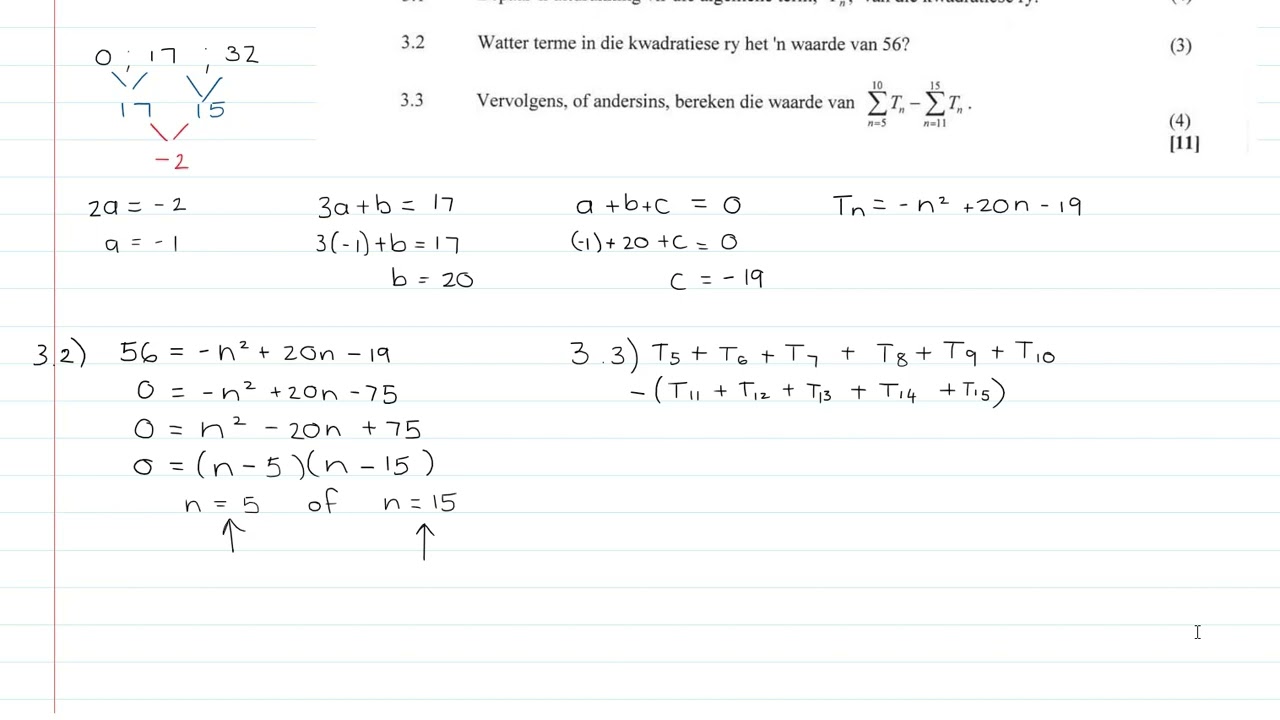 0 ; 17 ; 32
17 15
-2
3.2 Watter terme in die kwadratiese ry het 'n waarde van 56? (3)
3.3 Vervolgens, of andersins, bereken die waarde van \sum_{n=5}^{10} T_n - \sum_{n=11}^{15} T_n .
(4)
[11]
2a = -2
a = -1
3a + b = 17
3(-1) + b = 17
b = 20
a + b + c = 0
(-1) + 20 + c = 0
c = -19
T_n = -n² + 20n - 19
3.2) 56 = -n² + 20n - 19
0 = -n² + 20n - 75
0 = n² - 20n + 75
0 = (n - 5)(n - 15)
n = 5 of n = 15
3.3) T_5 + T_6 + T_7 + T_8 + T_9 + T_10
- (T_11 + T_12 + T_13 + T_14 + T_15)